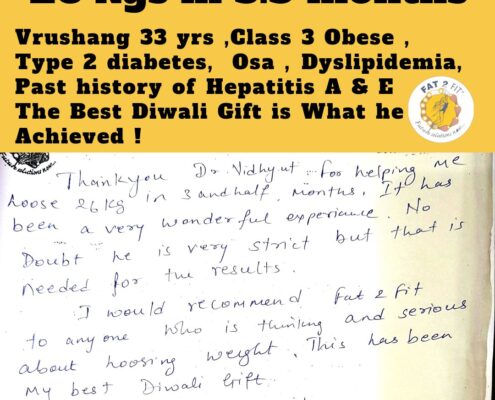 Vrushang 33 yrs ,Class 3 Obese ,
Type 2 diabetes,  Osa , Dyslipidemia,
Past history of Hepatitis A & E
The Best Diwali Gift is What he
Achieved !
FAT 2 FIT
solutions now...
Thankyou Dr. Vidhyut for helping me
loose 26kg in 3 and half months. It has
been a very wonderful experience. No
Doubt he is very strict but that is
needed for the results.
I would recommend Fat 2 fit
to anyone who is thinking and serious
about loosing weight. This has been
My best Diwali Gift.